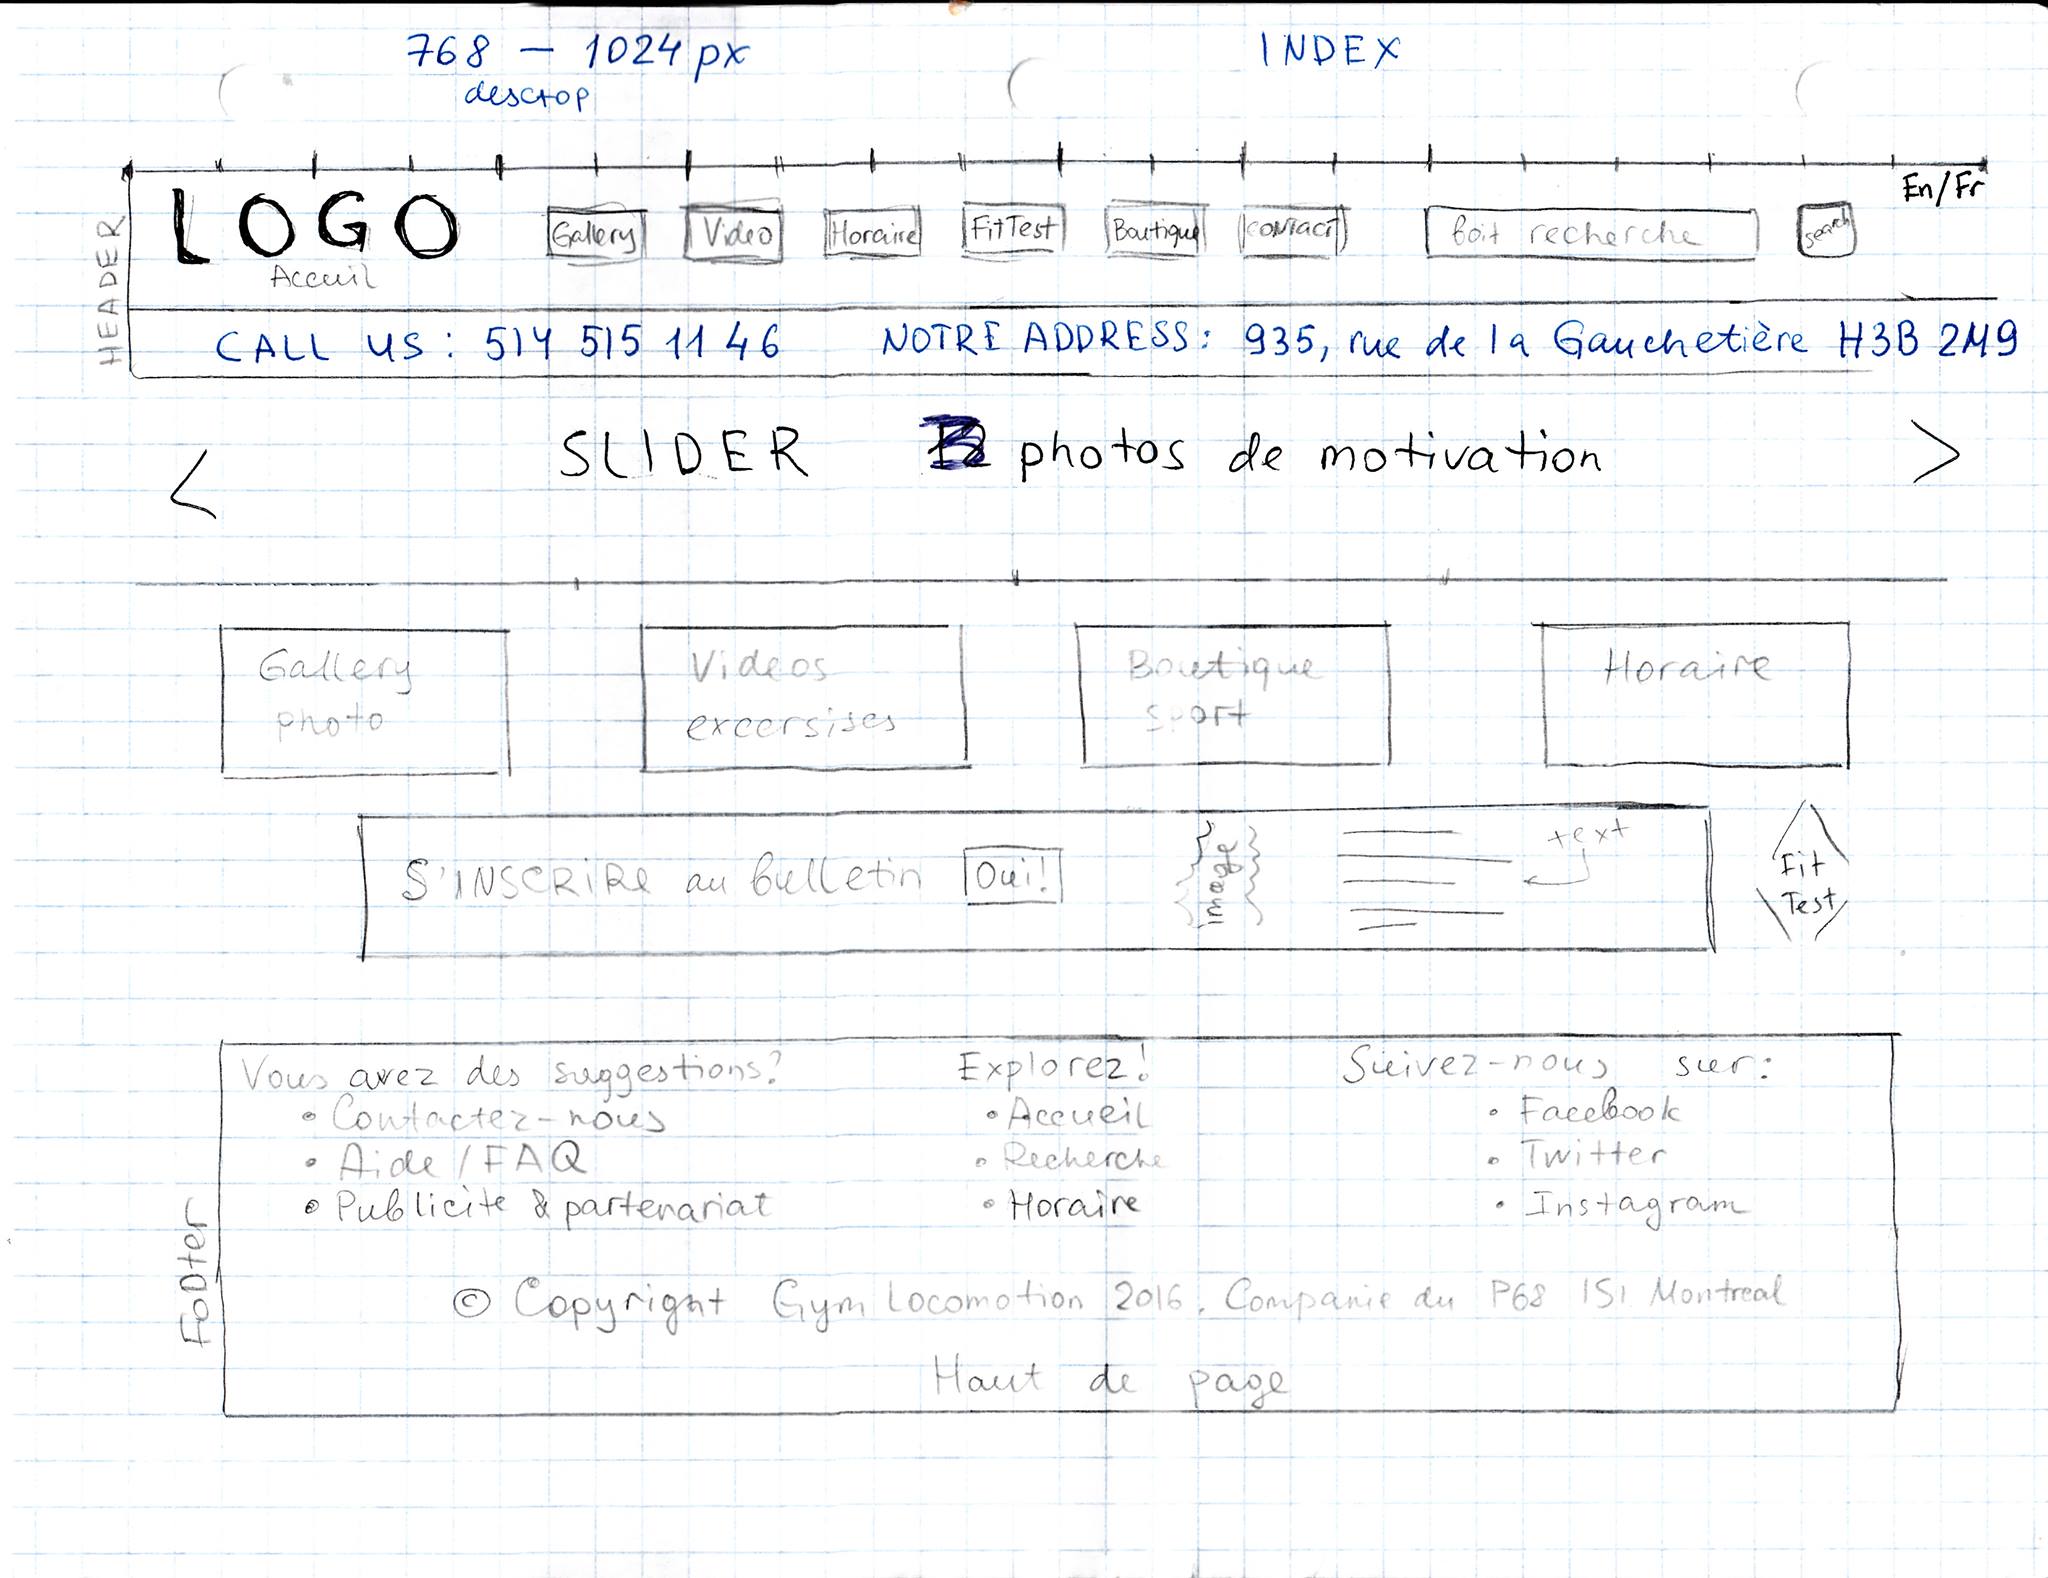 768 — 1024 px
desctop
INDEX
HEADER
En/Fr
LOGO
Accuil
Gallery
Video
Horaire
FitTest
Boutique
CONTACT
boit recherche
search
CALL US: 514 515 11 46
NOTRE ADDRESS: 935, rue de la Gauchetière H3B 2M9
< SLIDER photos de motivation >
Gallery
photo
Videos
excersises
Boutique
sport
Horaire
S'INSCRIRE au bulletin
Oui!
image
text
Fit
Test
Footer
Vous avez des suggestions?
• Contactez-nous
• Aide / FAQ
• Publicite & partenariat
Explorez!
• Accueil
• Recherche
• Horaire
Suivez-nous sur:
• Facebook
• Twitter
• Instagram
© Copyright Gym Locomotion 2016. Companie du P68 ISI Montreal
Haut de page